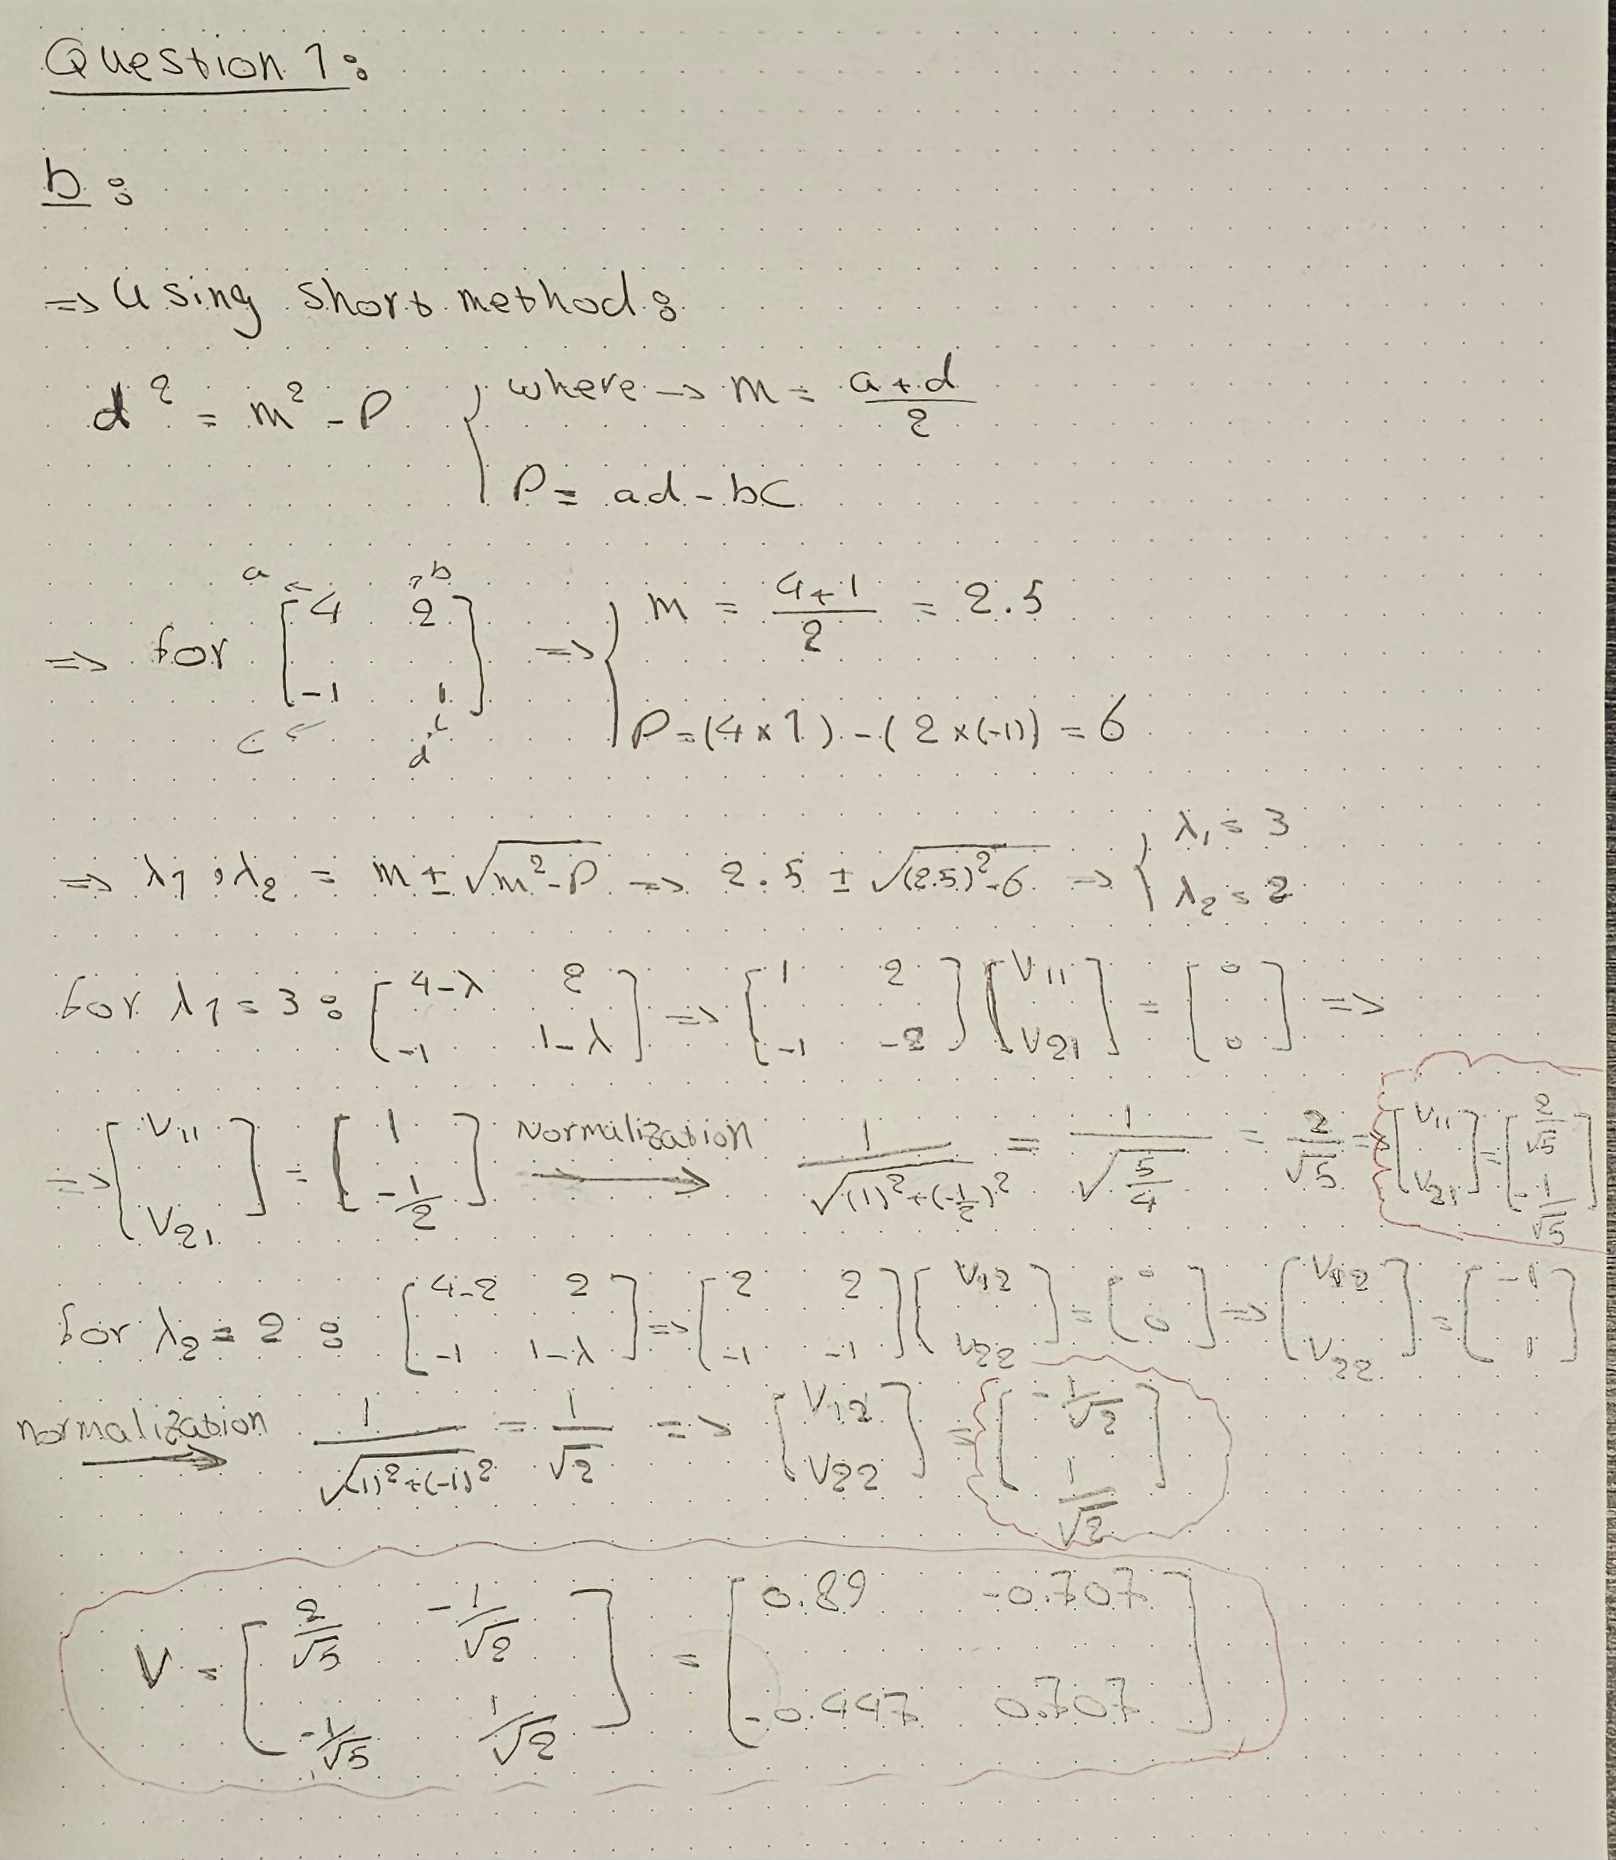 Question 1:
b:
=> Using short method:
d² = m² - P { where → m = (a+d)/2
P = ad - bc
=> for [4 2; -1 1] a b c d => { m = (4+1)/2 = 2.5
P = (4×1) - (2×(-1)) = 6
=> λ1, λ2 = m ± √(m²-P) => 2.5 ± √((2.5)²-6) => { λ1 = 3
λ2 = 2
for λ1 = 3 : [4-λ 2; -1 1-λ] => [1 2; -1 -2] [V11; V21] = [0; 0] =>
=> [V11; V21] = [1; -1/2] Normalization → 1/√((1)²+(-1/2)²) = 1/√(5/4) = 2/√5 => [V11; V21] = [2/√5; -1/√5]
for λ2 = 2 : [4-2 2; -1 1-λ] => [2 2; -1 -1] [V12; V22] = [0; 0] => [V12; V22] = [-1; 1]
normalization → 1/√((1)²+(-1)²) = 1/√2 => [V12; V22] = [-1/√2; 1/√2]
V = [2/√5 -1/√2; -1/√5 1/√2] = [0.89 -0.707; -0.447 0.707]